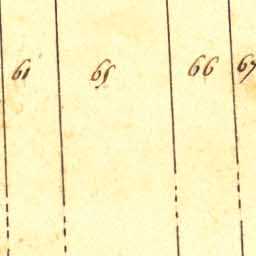 61 65 66 67